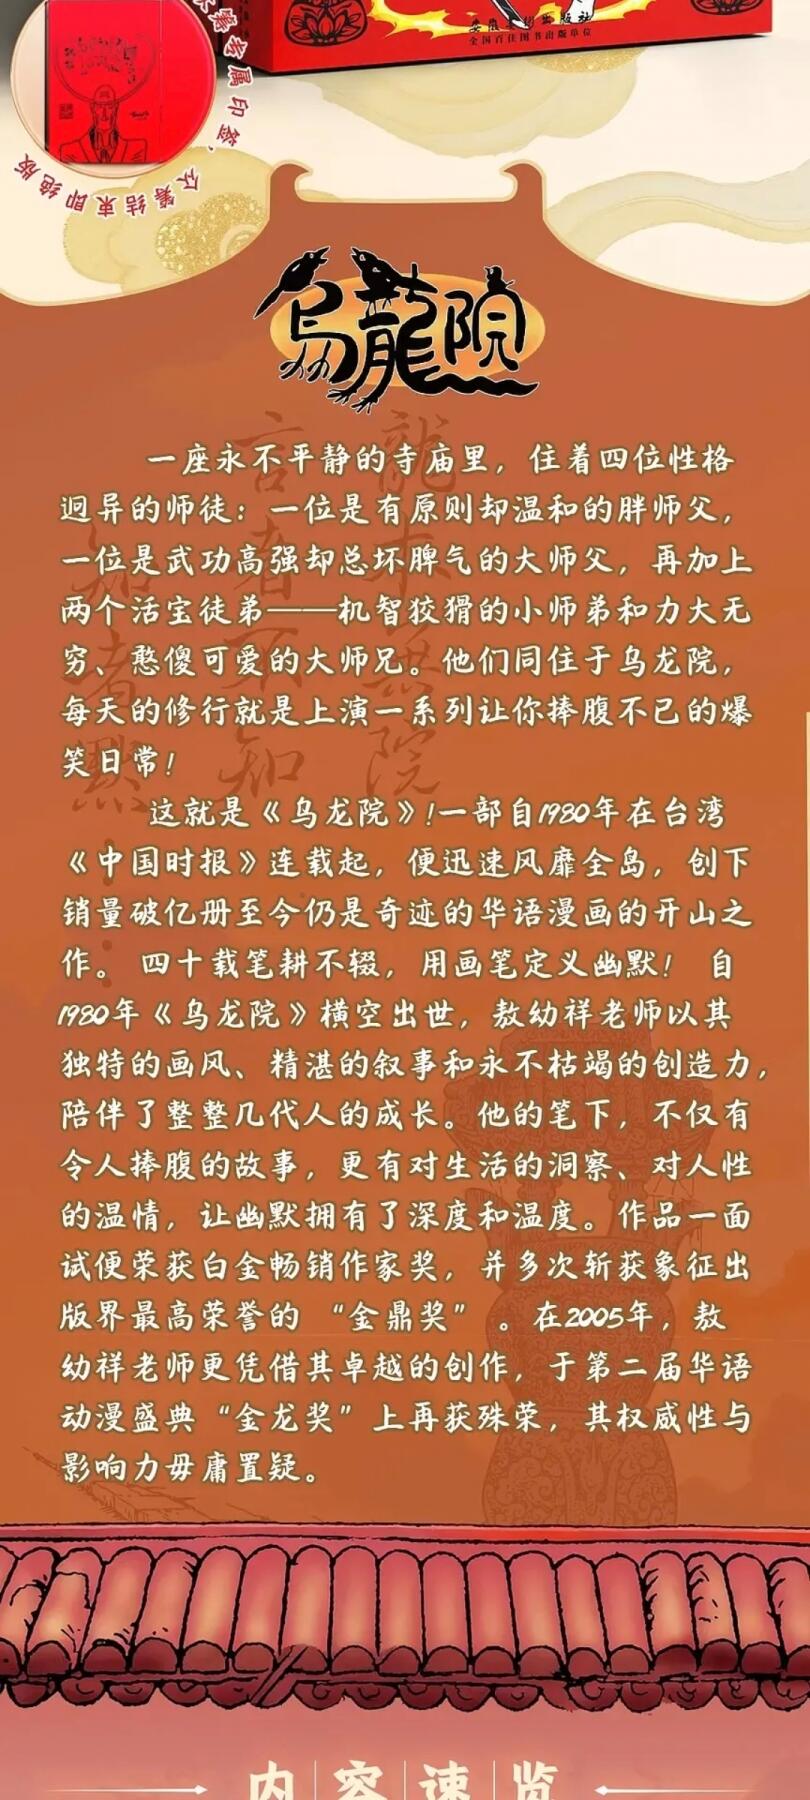 安徽美术出版社
全国百佳图书出版单位
众筹专属印签，
众筹结束即绝版
乌龍院
一座永不平静的寺庙里，住着四位性格
迥异的师徒：一位是有原则却温和的胖师父，
一位是武功高强却总坏脾气的大师父，再加上
两个活宝徒弟——机智狡猾的小师弟和力大无
穷、憨傻可爱的大师兄。他们同住于乌龙院，
每天的修行就是上演一系列让你捧腹不已的爆
笑日常！
这就是《乌龙院》！一部自1980年在台湾
《中国时报》连载起，便迅速风靡全岛，创下
销量破亿册至今仍是奇迹的华语漫画的开山之
作。 四十载笔耕不辍，用画笔定义幽默！ 自
1980年《乌龙院》横空出世，敖幼祥老师以其
独特的画风、精湛的叙事和永不枯竭的创造力，
陪伴了整整几代人的成长。他的笔下，不仅有
令人捧腹的故事，更有对生活的洞察、对人性
的温情，让幽默拥有了深度和温度。作品一面
试便荣获白金畅销作家奖，并多次斩获象征出
版界最高荣誉的 “金鼎奖” 。在2005年，敖
幼祥老师更凭借其卓越的创作，于第二届华语
动漫盛典“金龙奖”上再获殊荣，其权威性与
影响力毋庸置疑。
内容速览